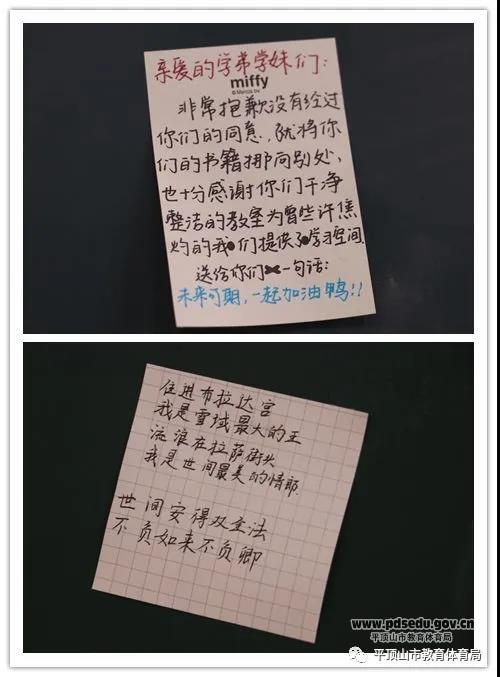 亲爱的学弟学妹们:
miffy
非常抱歉没有经过
你们的同意,就将你
们的书籍挪向别处,
也十分感谢你们干净
整洁的教室为曾些许焦
灼的我们提供了学习空间.
送给你们一句话:
未来可期,一起加油鸭!!
住进布拉达宫
我是雪域最大的王
流浪在拉萨街头
我是世间最美的情郎.
世间安得双全法
不负如来不负卿
www.pdsedu.gov.cn
平顶山市教育体育局
平顶山市教育体育局